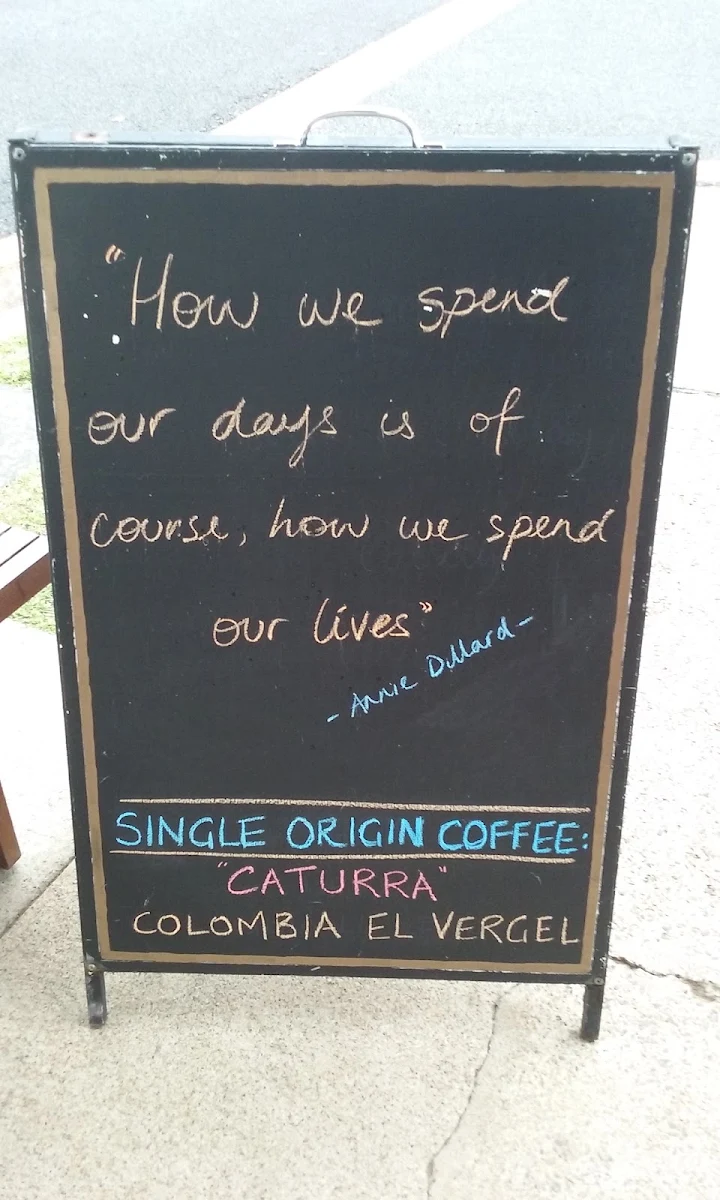 "How we spend
our days is of
course, how we spend
our lives"
- Annie Dillard -
SINGLE ORIGIN COFFEE:
"CATURRA"
COLOMBIA EL VERGEL